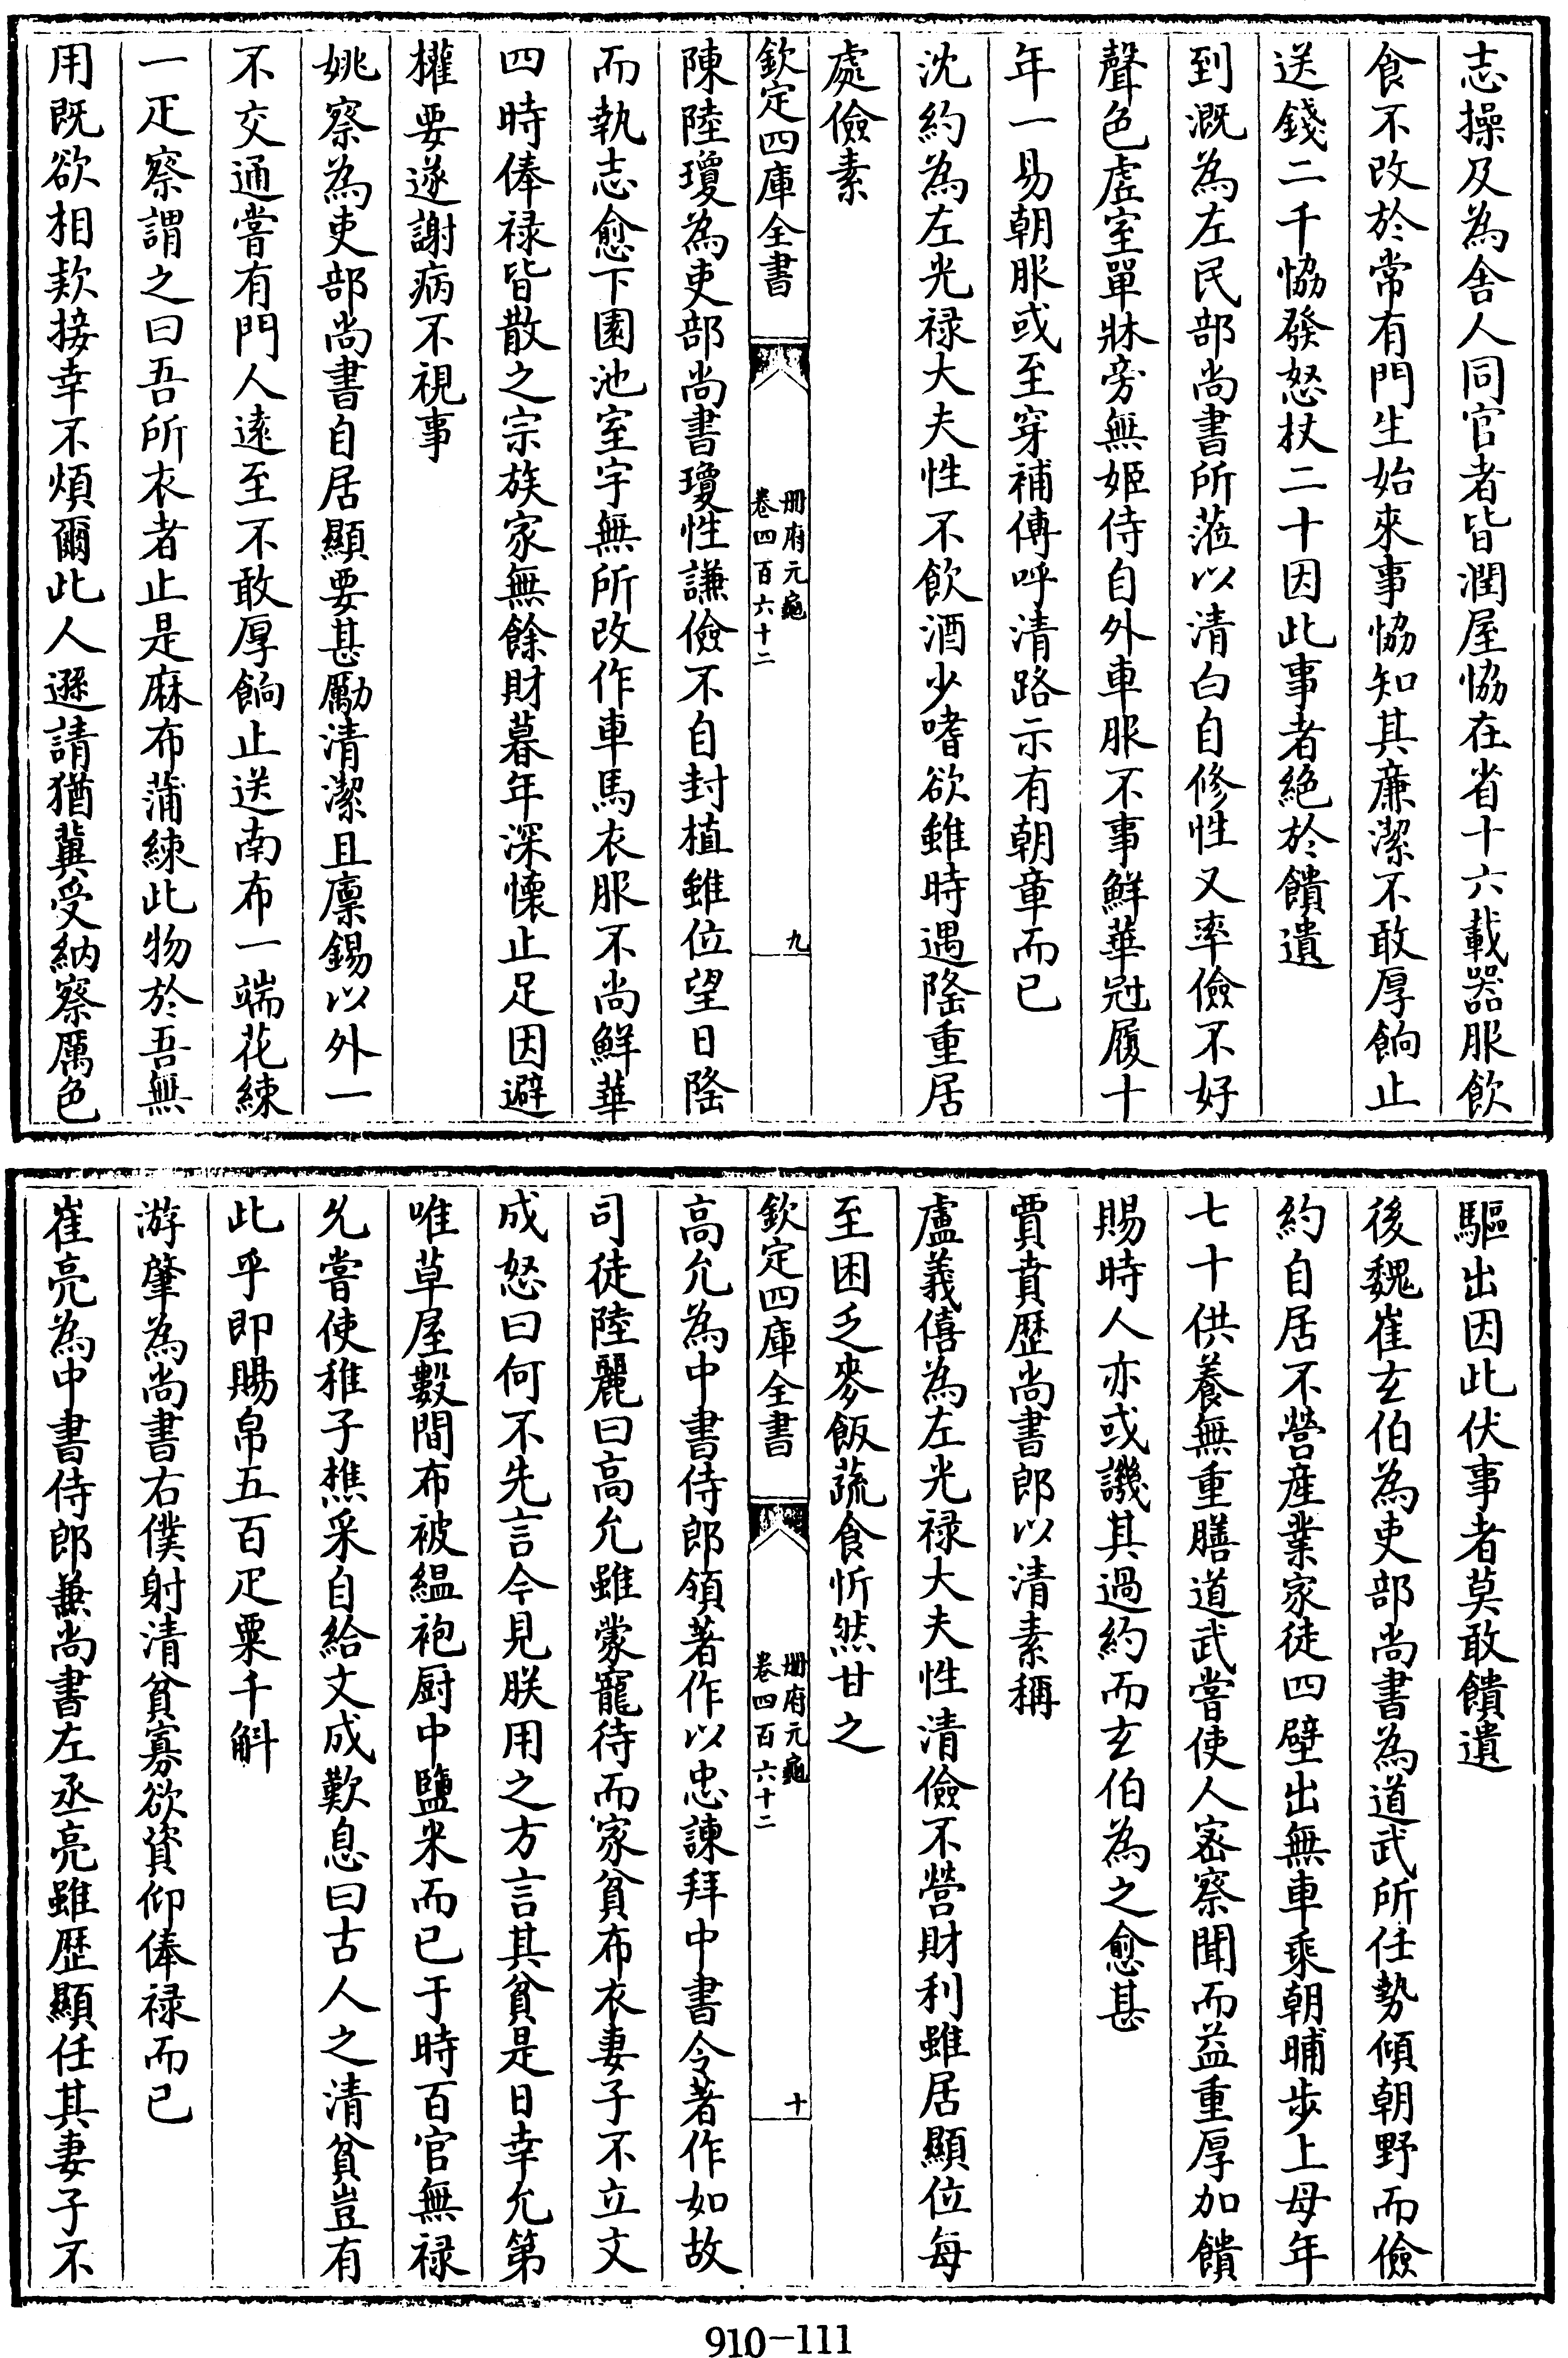 志操及為舍人同官者皆潤屋協在省十六載器服飲
食不改於常有門生始來事協知其廉潔不敢厚餉止
送錢二千協發怒杖二十因此事者絕於饋遺
到溉為左民部尚書所蒞以清白自修性又率儉不好
聲色虛室單牀旁無姬侍自外車服不事鮮華冠履十
年一易朝服或至穿補傳呼清路示有朝章而已
沈約為左光禄大夫性不飲酒少嗜欲雖時遇隆重居
處儉素
欽定四庫全書
冊府元龜
卷四百六十二
九
陳陸瓊為吏部尚書瓊性謙儉不自封植雖位望日隆
而執志愈下園池室宇無所改作車馬衣服不尚鮮華
四時俸禄皆散之宗族家無餘財暮年深懷止足因避
權要遂謝病不視事
姚察為吏部尚書自居顯要甚勵清潔且廩錫以外一
不交通嘗有門人遠至不敢厚餉止送南布一端花練
一疋察謂之曰吾所衣者止是麻布蒲練此物於吾無
用既欲相欵接幸不煩爾此人遜請猶冀受納察厲色
驅出因此伏事者莫敢饋遺
後魏崔玄伯為吏部尚書為道武所任勢傾朝野而儉
約自居不營産業家徒四壁出無車乘朝晡步上母年
七十供養無重膳道武嘗使人密察聞而益重厚加饋
賜時人亦或譏其過約而玄伯為之愈甚
賈賁歴尚書郎以清素稱
盧義僖為左光禄大夫性清儉不營財利雖居顯位每
至困乏麥飯蔬食忻然甘之
欽定四庫全書
冊府元龜
卷四百六十二
十
高允為中書侍郎領著作以忠諫拜中書令著作如故
司徒陸麗曰高允雖蒙寵待而家貧布衣妻子不立文
成怒曰何不先言今見朕用之方言其貧是日幸允第
唯草屋數間布被緼袍厨中鹽米而已于時百官無禄
允嘗使稚子樵采自給文成歎息曰古人之清貧豈有
此乎即賜帛五百疋粟千斛
游肇為尚書右僕射清貧寡欲資仰俸禄而已
崔亮為中書侍郎兼尚書左丞亮雖歴顯任其妻子不
910-111